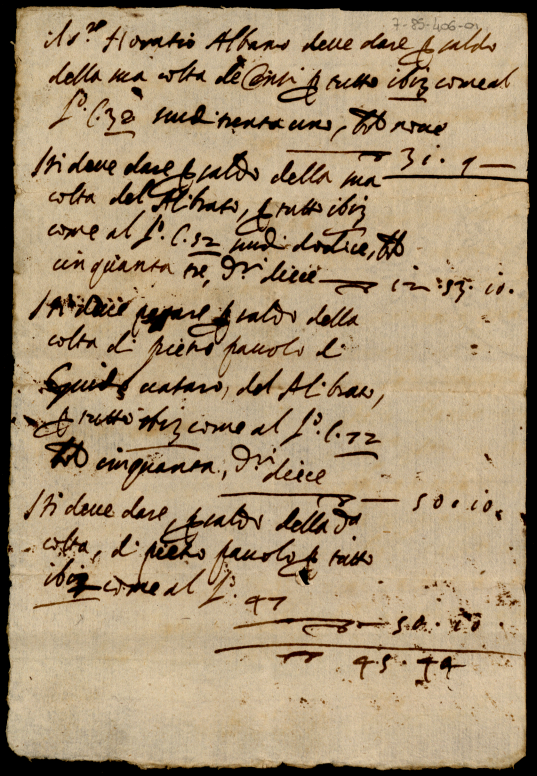 7-85-406-01
il s.re Horatio Albano deve dare p saldo
della sua colta de Censi p tutto 1613 come al
l.o C. 32 scudi trenta uno, bb nove
31 . 9
Iti deve dare p saldo della sua
colta del Alibrato, p tutto 1613
come al l.o C. 52 scudi dodice, bb
cinquanta tre, d.ri diece 12 . 53 . 10.
Iti deve pagare p saldo della
colta di pietro pauolo di
Guido del Alibrato,
p tutto 1613 come al l.o C. 72
bb cinquanta, d.ri diece
50 . 10.
Iti deve dare, p saldo della d.a
colta, di pietro pauolo p tutto
come al l.o
47
50 . 10 .
45 . 44